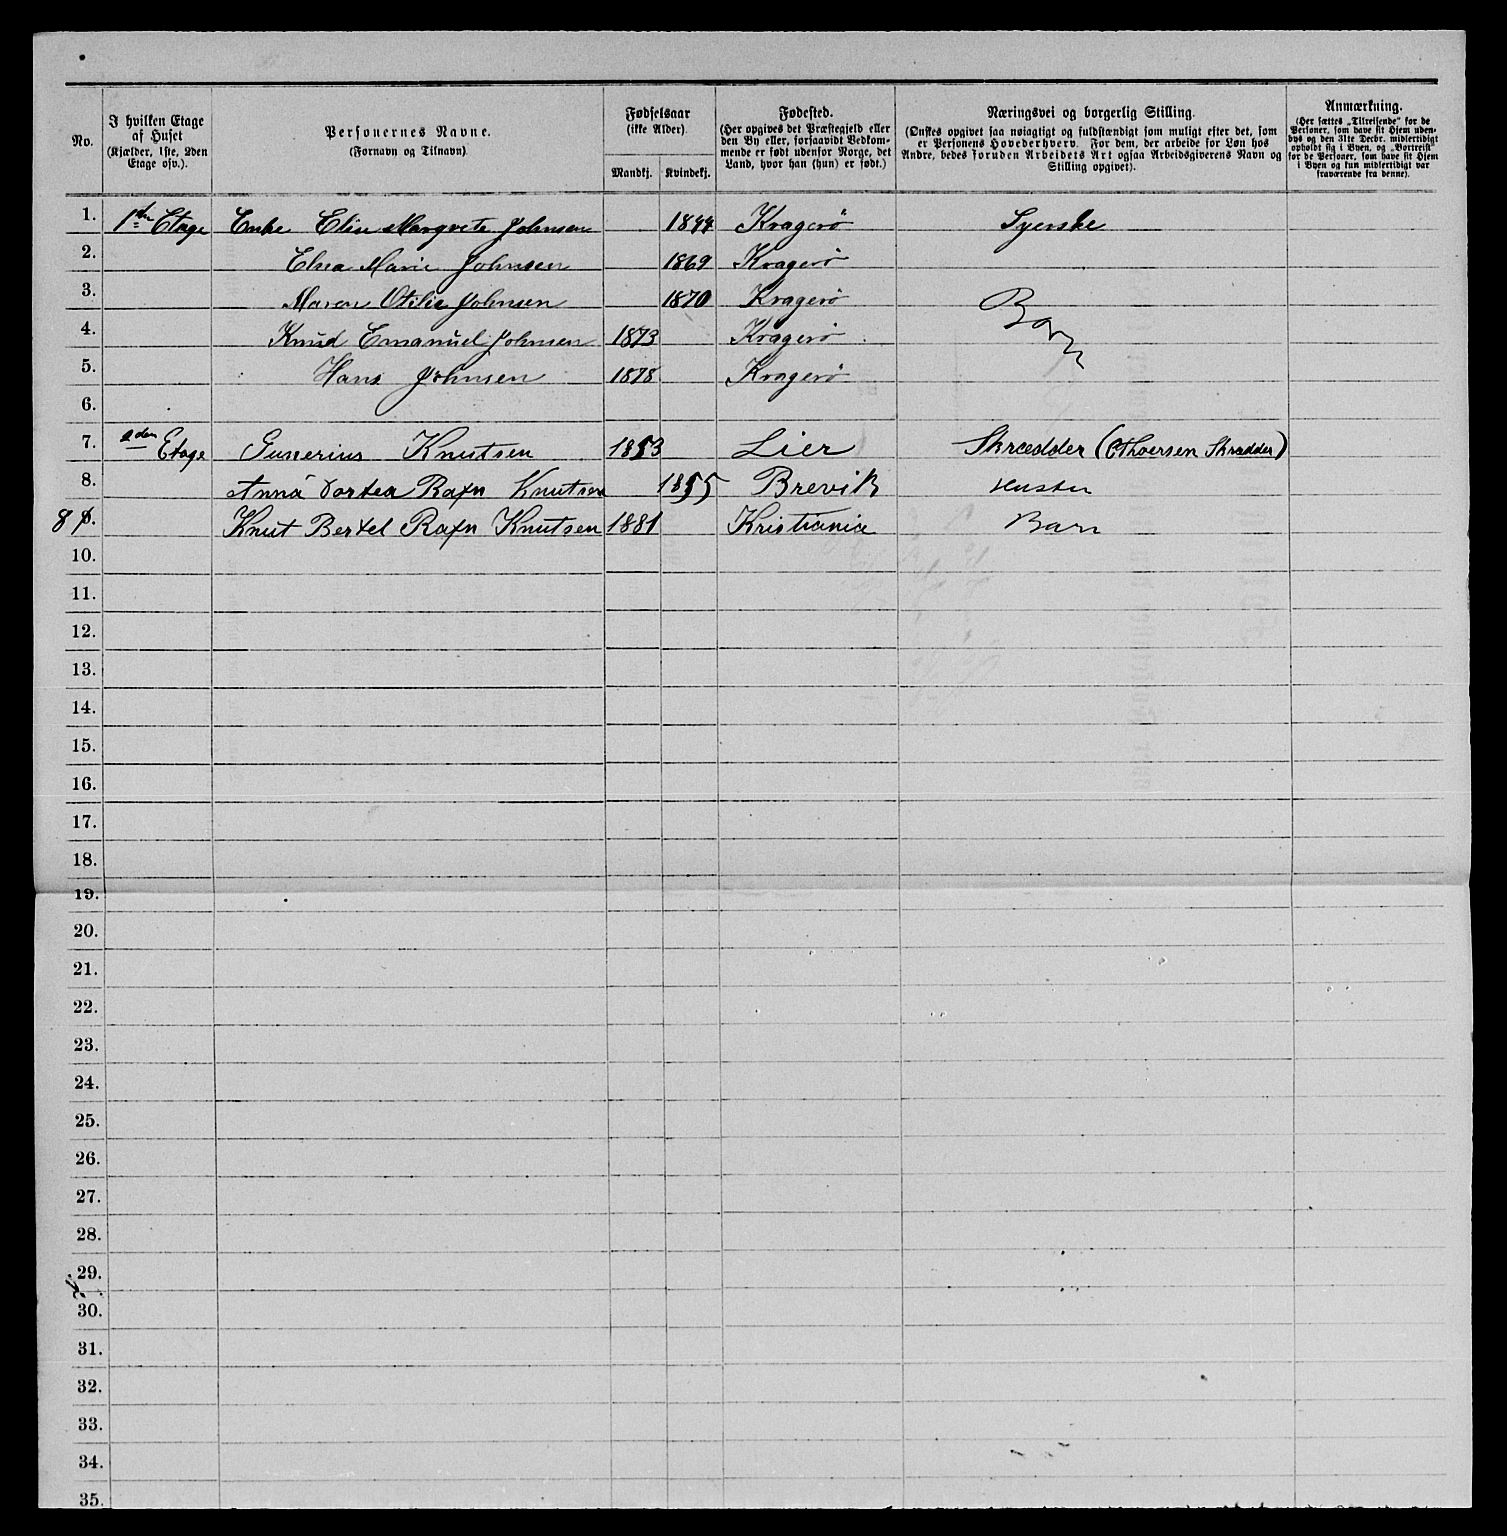 No.
I hvilken Etage
af Huset
(Kjælder, 1ste, 2den
Etage osv.).
Personernes Navne.
(Fornavn og Tilnavn)
Fødselsaar
(ikke Alder).
Mandkj. Kvindekj.
Fødested.
(Her opgives det Præstegjeld eller
den By eller, forsaavidt Vedkom-
mende er født udenfor Norge, det
Land, hvor han (hun) er født.)
Næringsvei og borgerlig Stilling.
(Ønskes opgivet saa nøiagtigt og fuldstændigt som muligt efter det, som
er Personens Hovederhverv. For dem, der arbeide for Løn hos
Andre, bedes foruden Arbeidets Art ogsaa Arbeidsgiverens Navn og
Stilling opgivet).
Anmærkning.
(Her sættes „Tilreisende" for de
Personer, som have sit Hjem uden-
bys og den 31te Decbr. midlertidigt
opholdt sig i Byen, og „Bortreist"
for de Personer, som have sit Hjem
i Byen og kun midlertidigt var
fraværende fra denne).
1. 1ste Etage Enke Elin Margrete Johnsen 1844 Kragerø Syerske
2. Elna Marie Johnsen 1869 Kragerø
3. Maren Otilie Johnsen 1870 Kragerø Barn
4. Knud Emanuel Johnsen 1873 Kragerø
5. Hans Johnsen 1878 Kragerø
6.
7. 2den Etage Gunerius Knutsen 1853 Lier Skrædder (Thoersen Skrædder)
8. Anna Dortea Rafn Knutsen 1855 Brevik Hustru
8 9. Knut Bertel Rafn Knutsen 1881 Kristiania Barn
10.
11.
12.
13.
14.
15.
16.
17.
18.
19.
20.
21.
22.
23.
24.
25.
26.
27.
28.
29.
30.
31.
32.
33.
34.
35.